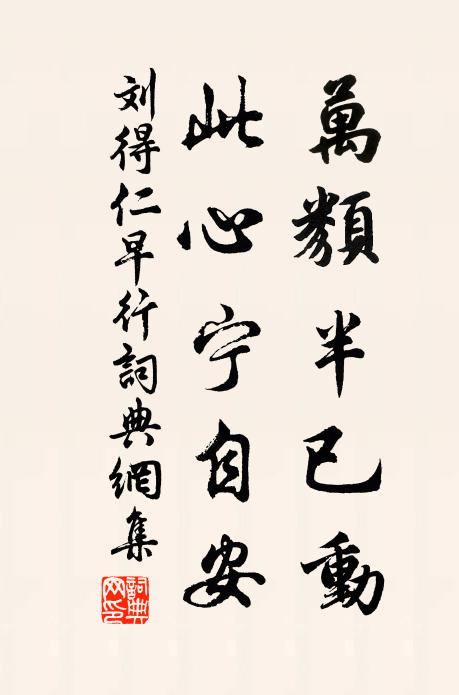 萬類半已動
此心宁自安
刘得仁早行詞典網集
詞典網印